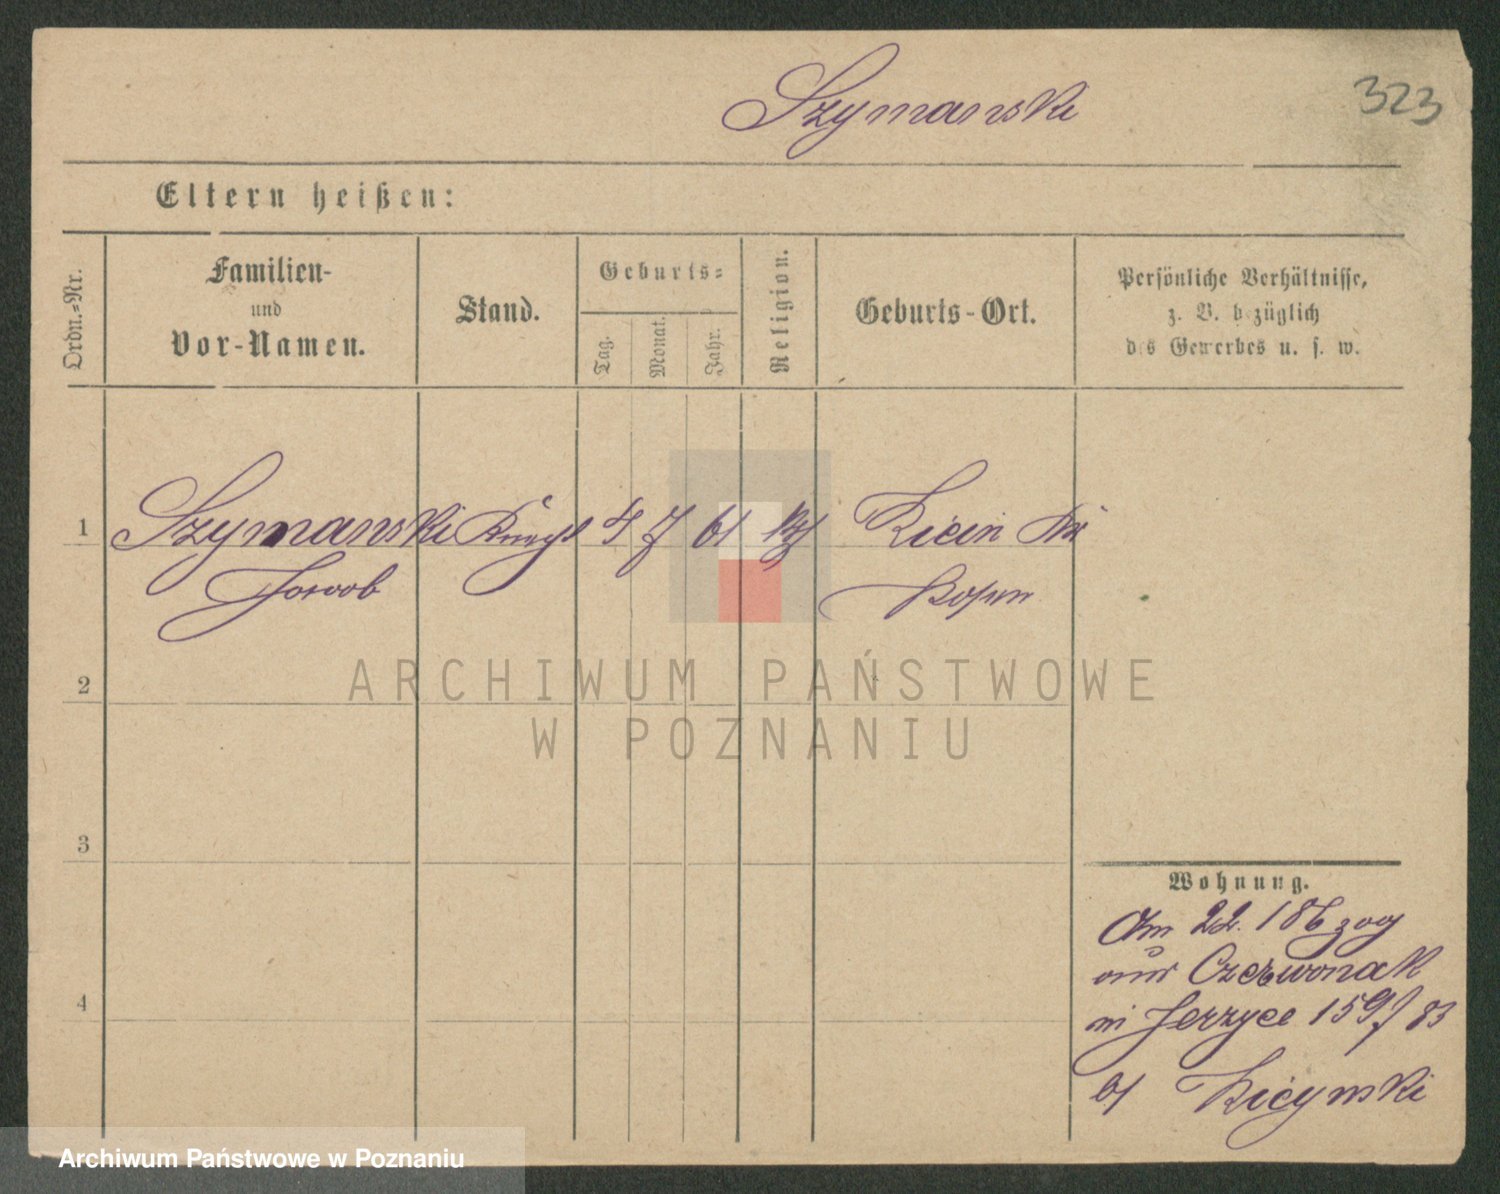 Szymanski
323
Eltern heißen:
Ordn.-Nr.
Familien-
und
Vor-Namen.
Stand.
Geburts-
Tag.
Monat.
Jahr.
Religion.
Geburts-Ort.
Persönliche Verhältnisse,
z. B. bezüglich
des Gewerbes u. s. w.
1
Szymanski 4 7 61 Kicin
Jacob Posen
2
ARCHIWUM PAŃSTWOWE
W POZNANIU
3
Wohnung.
Am 22. 1 86 zog
aus Czerwonak
in Jerzyce 159
4
Archiwum Państwowe w Poznaniu